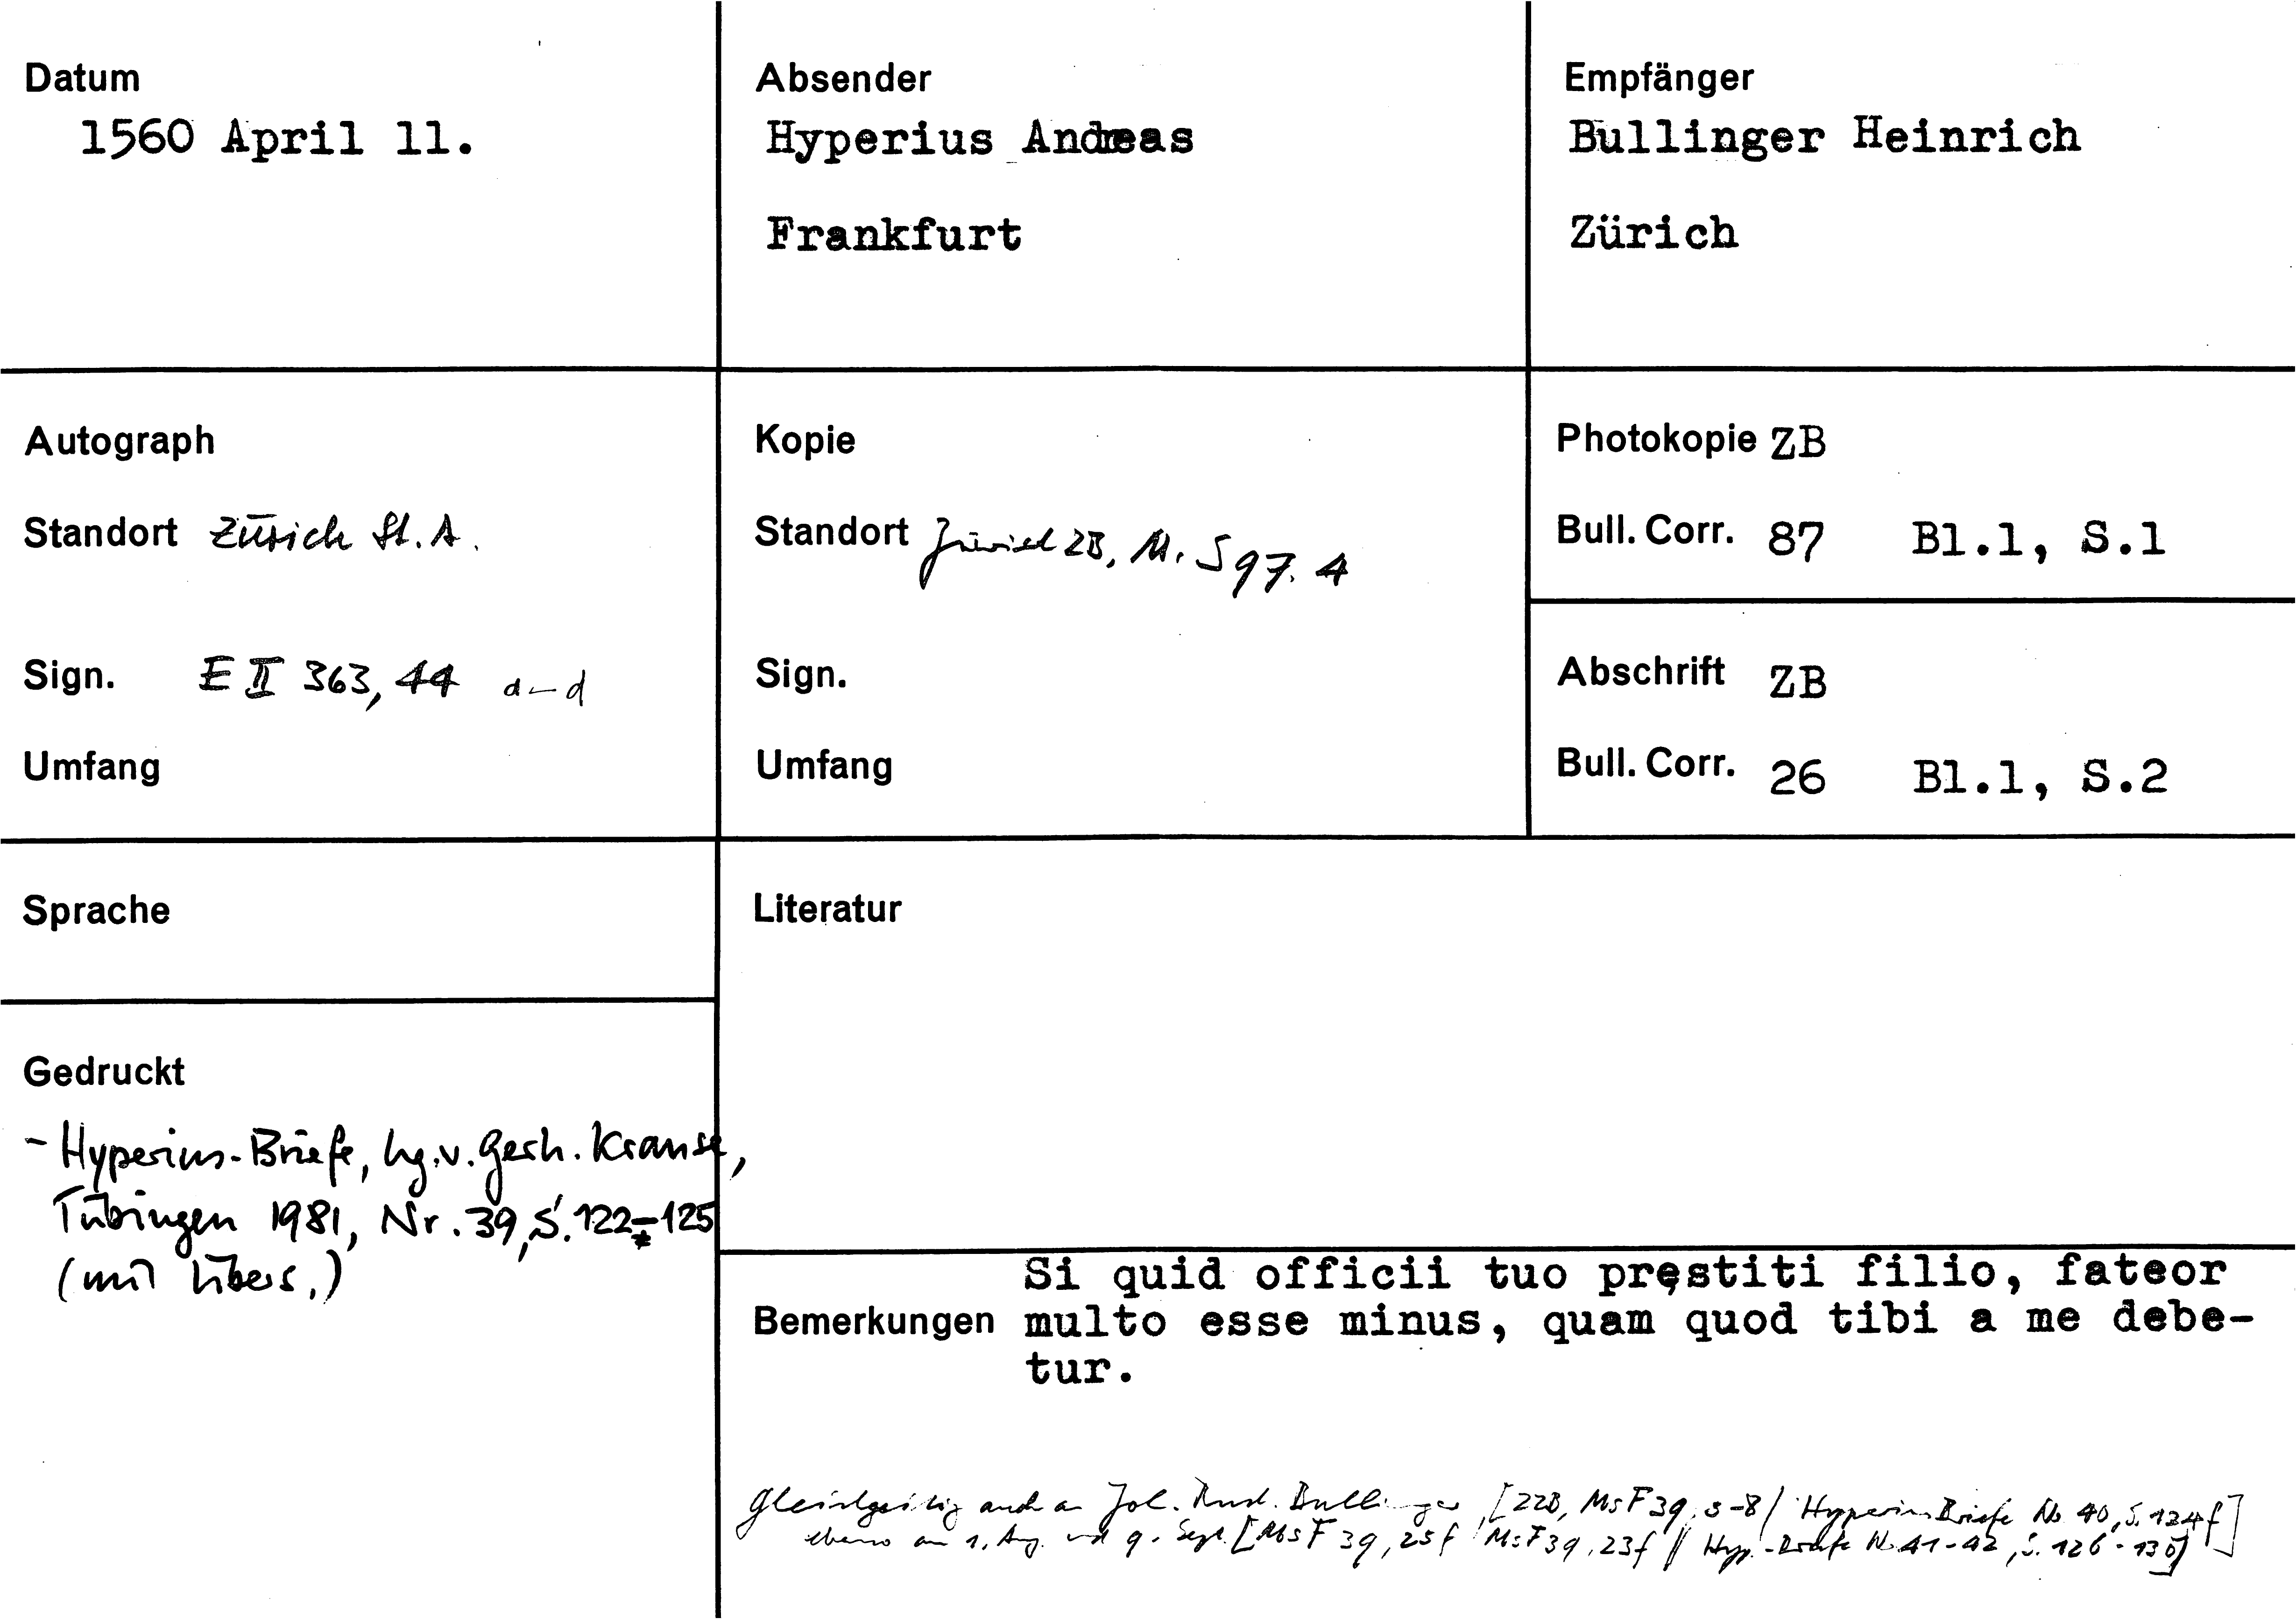 Datum
1560 April 11.
Absender
Hyperius Andreas
Frankfurt
Empfänger
Bullinger Heinrich
Zürich
Autograph
Standort Zürich St. A.
Sign. E II 363, 44 a-d
Umfang
Kopie
Standort Zürich ZB, M. S 97. 4
Sign.
Umfang
Photokopie ZB
Bull. Corr. 87 Bl.1, S.1
Abschrift ZB
Bull. Corr. 26 Bl.1, S.2
Sprache
Literatur
Gedruckt
- Hyperius-Briefe, hg. v. Gerh. Krause,
Tübingen 1981, Nr. 39, S. 122-125
(mit Übers.)
Bemerkungen
Si quid officii tuo pręstiti filio, fateor
multo esse minus, quam quod tibi a me debe-
tur.
Gleichzeitig auch an Joh. Rud. Bullinger, [ZZB, Ms F 39, Hyperius Briefe No 40, S. 124f]
ebenso am 1. Aug. und 9. Sept. [Ms F 39, 25f Ms F 39, 23f // Hyp.-Briefe N. 41-42, S. 126-130]